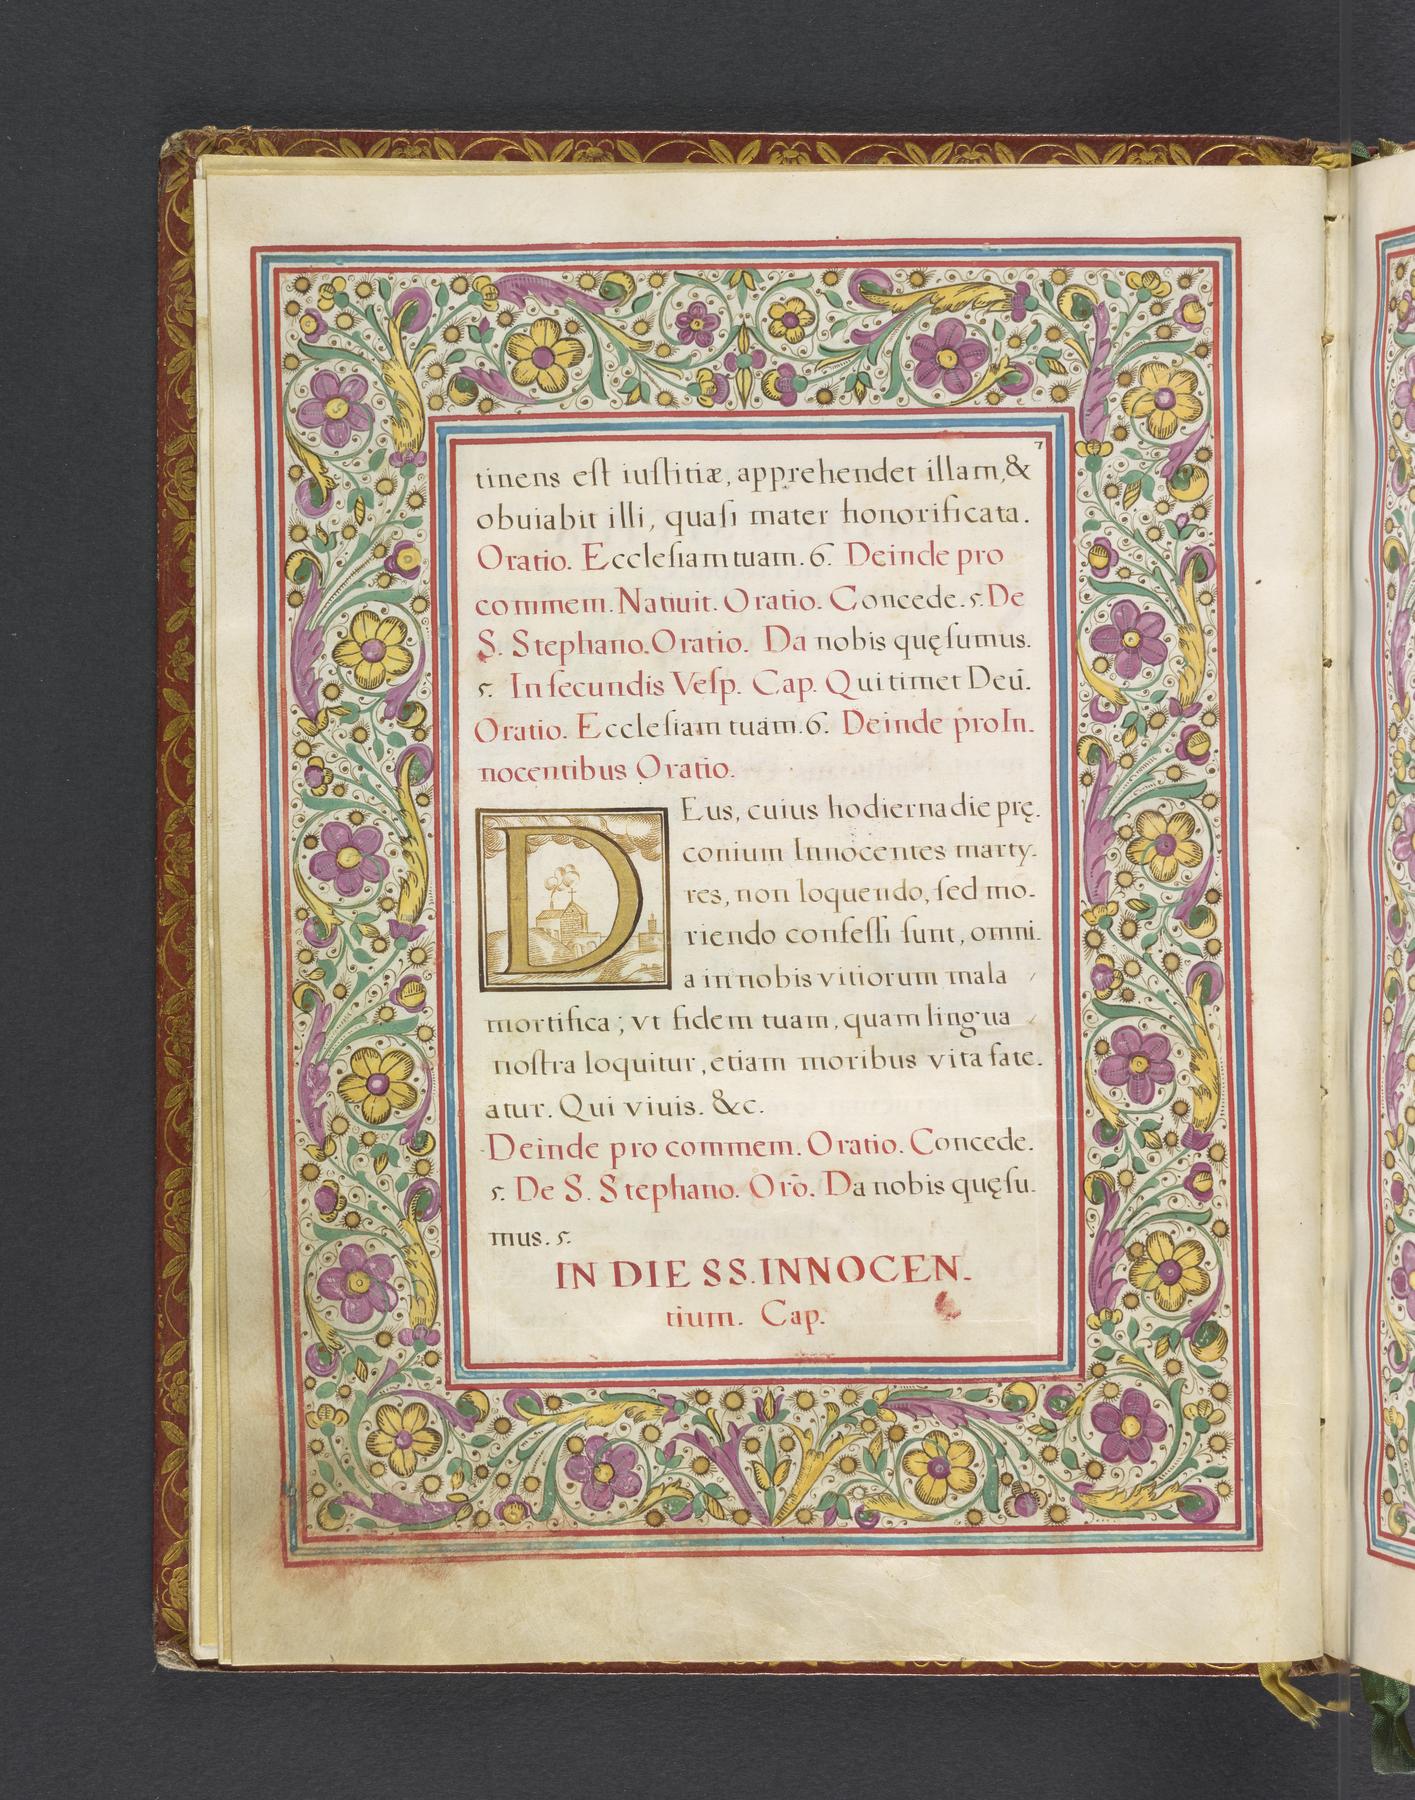 7
tinens eſt iuſtitiæ, apprehendet illam, &
obuiabit illi, quaſi mater honorificata.
Oratio. Eccleſiam tuam. 6. Deinde pro
commem. Natiuit. Oratio. Concede. 5. De
S. Stephano. Oratio. Da nobis quęſumus.
5. In ſecundis Veſp. Cap. Qui timet Deū.
Oratio. Eccleſiam tuam. 6. Deinde pro In-
nocentibus Oratio.
DEus, cuius hodierna die prę-
conium Innocentes marty-
res, non loquendo, ſed mo-
riendo confeſſi ſunt, omni-
a in nobis vitiorum mala
mortifica; vt fidem tuam, quam lingua
noſtra loquitur, etiam moribus vita fate-
atur. Qui viuis. &c.
Deinde pro commem. Oratio. Concede.
5. De S. Stephano. Orō. Da nobis quęſu-
mus. 5.
IN DIE SS. INNOCEN-
tium. Cap.